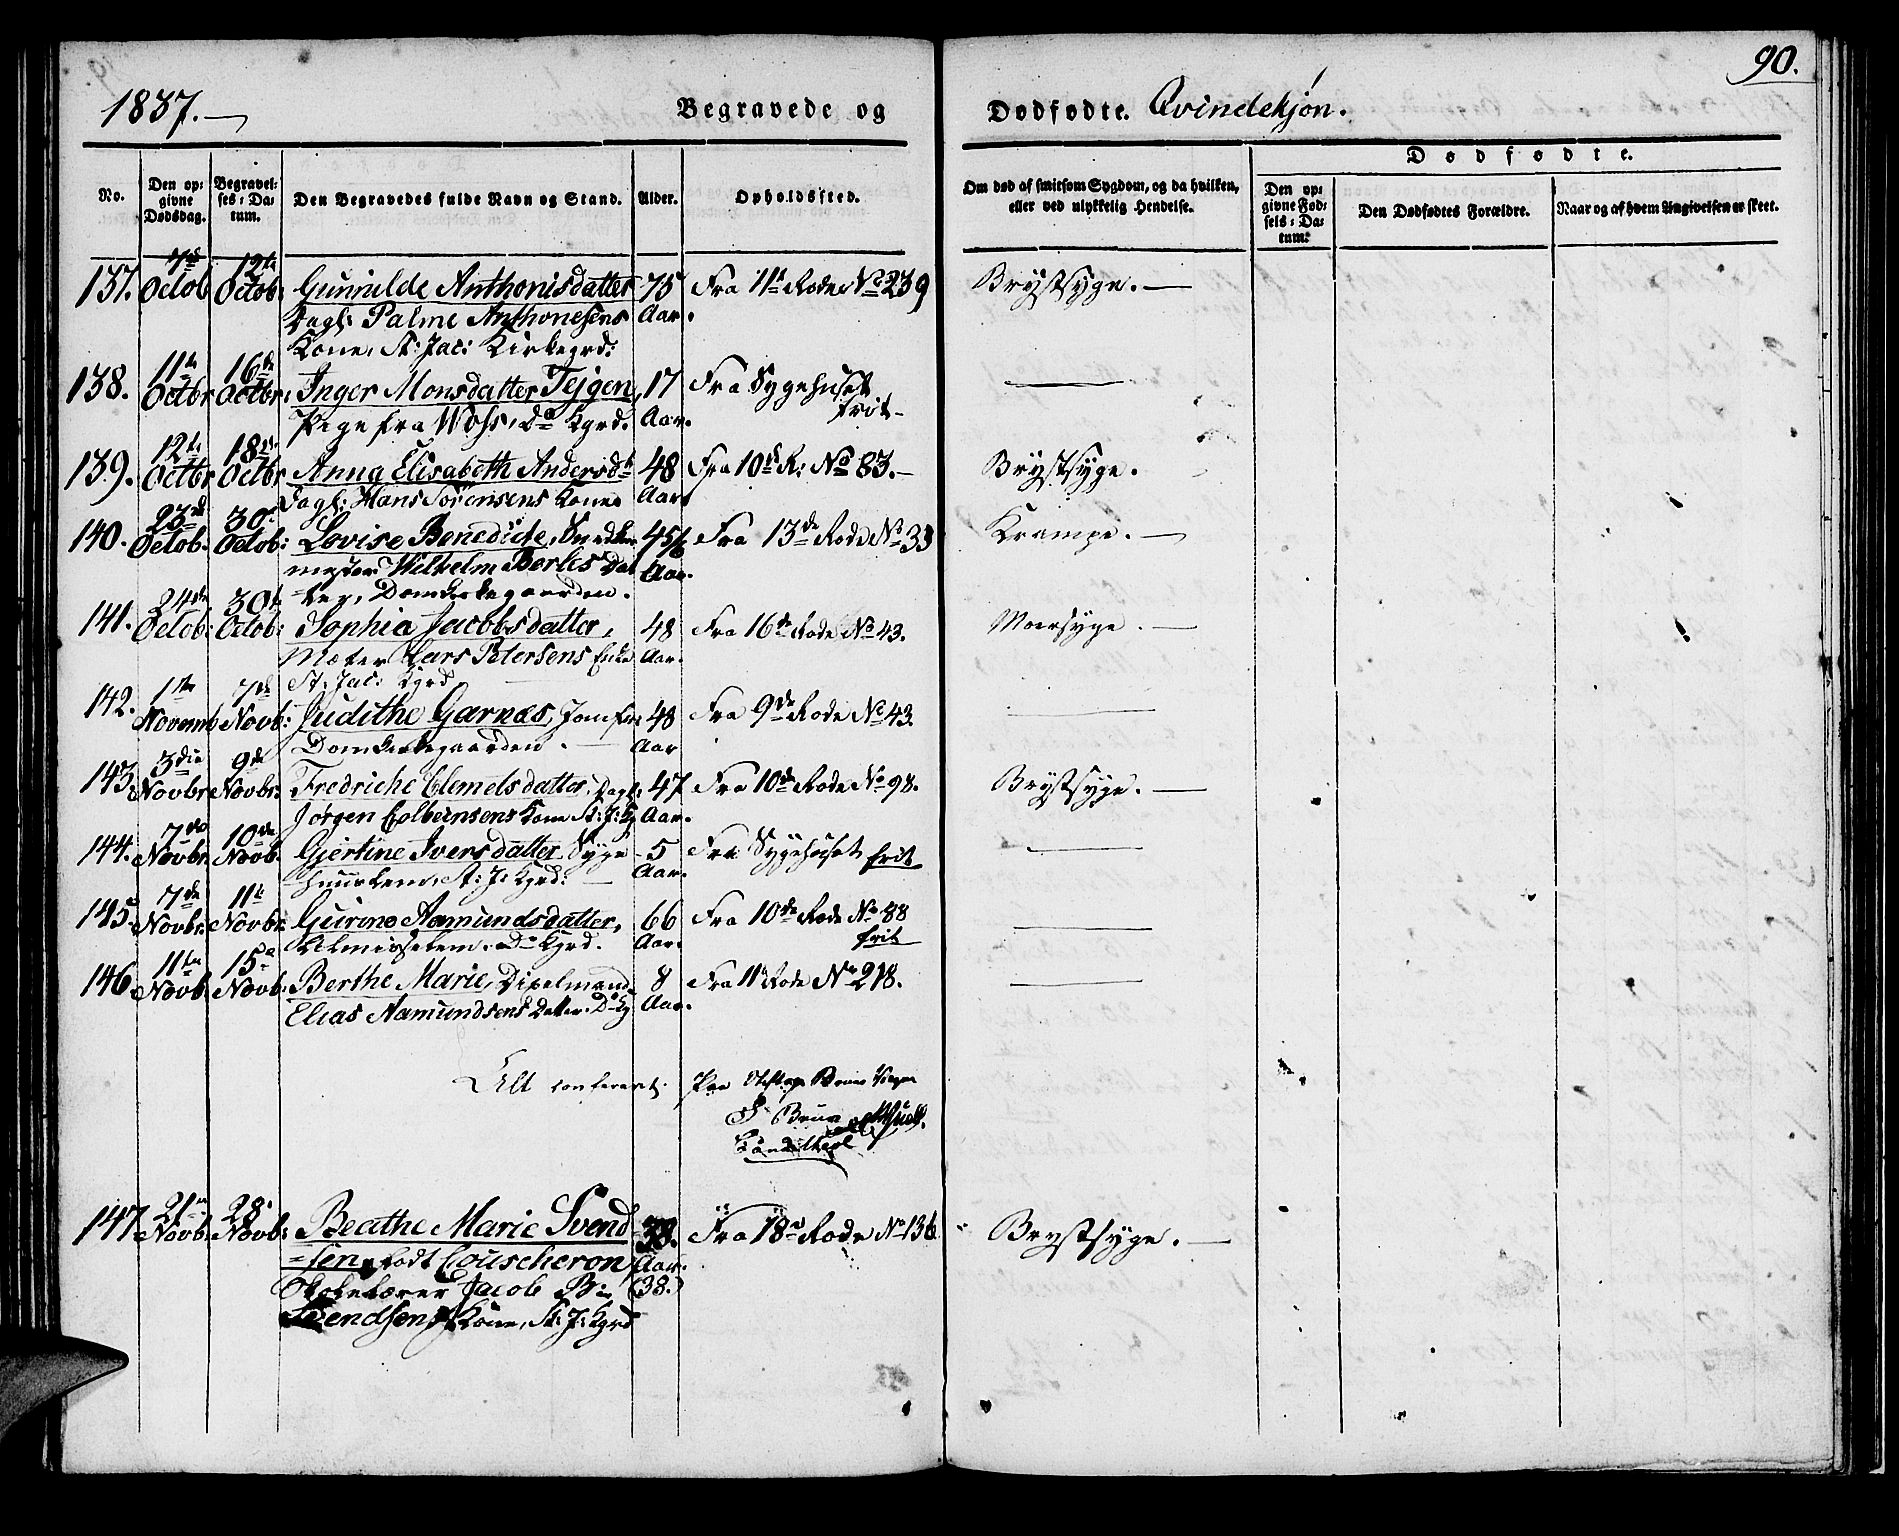 90.
1837.
Begravede og Dødfødte. Qvindekjøn.
No. Den opgivne Dødsdag. Begravelses-Datum. Den Begravedes fulde Navn og Stand. Alder. Opholdssted. Om død af smitsom Sygdom, og da hvilken, eller ved ulykkelig Hendelse.
Dødfødte.
Den opgivne Fødsels-Datum. Den Dødfødtes Forældre. Naar og af hvem Angivelsen er skeet.
137. 7de Octob 12te Octob: Gunnilde Anthonisdatter 75 Aar. Fra 11te Rode No 239 Brystsyge.
Dagl: Palme Anthonesens
Kone, St: Jac: Kirkegrd:
138. 11te Octbr 16de Octbr: Inger Monsdatter Tejgen, 17 Aar. Fra Sygehuset frit
Pige fra Woss, Do Kgrd.
139. 12te Octbr 18de Octbr Anna Elisabeth Andersdtr 48 Aar Fra 10de R: No 83. Brystsyge.
Dagl: Hans Sørensens Kone
140. 23de Octob. 30te Octob: Lovise Benedicte, Snedker 45/6 Aar. Fra 13de Rode No 33 Krampe.
mester Wilhelm Berles Dat
ter, Domkirkegaarden.
141. 24de Octob: 30te Octob: Sophia Jacobsdatter, 48 Aar. Fra 16de Rode No 43. Moersyge.
Mæter Lars Petersens Enke
St: Jac: Kgrd
142. 1ste Novemb 7de Novb: Judithe Garnæs, Jomfru 48 Aar Fra 9de Rode No 43.
Domkirkegaarden.
143. 3die Novbr 9de Novbr: Fredriche Clemetsdatter, Dagl: 47 Aar. Fra 10de Rode No 98. Brystsyge.
Jørgen Colbeinsens Kone St: J: K
144. 7de Novbr. 10de Novb. Gjertine Iversdatter Syge 5 Aar. Fra Sygehuset frit
huuslem, St: J: Kgrd:
145. 7de Novbr. 11te Novbr: Gurine Aamundsdatter, 66 Aar. Fra 10de Rode No 88 frit
Almisselem. Do Kgrd.
146. 11te Novb. 15de Novb: Berthe Marie, Dixelmand 8 Aar. Fra 11te Rode No 218.
Elias Aamundsens Datter. Do Kg
Alt confereret.
147. 21de Novb. 28de Novb: Beathe Marie Svend 38. Aar. (38.) Fra 18de Rode No 136 Brystsyge.
sen, født Couscheron
Skolelærer Jacob B:
Svendsens Kone, St: J: Kgrd